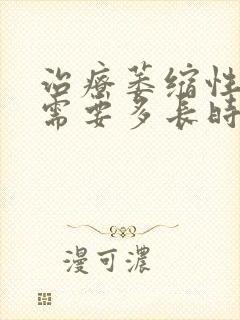 治療萎缩性
需要多长時
漫可濃